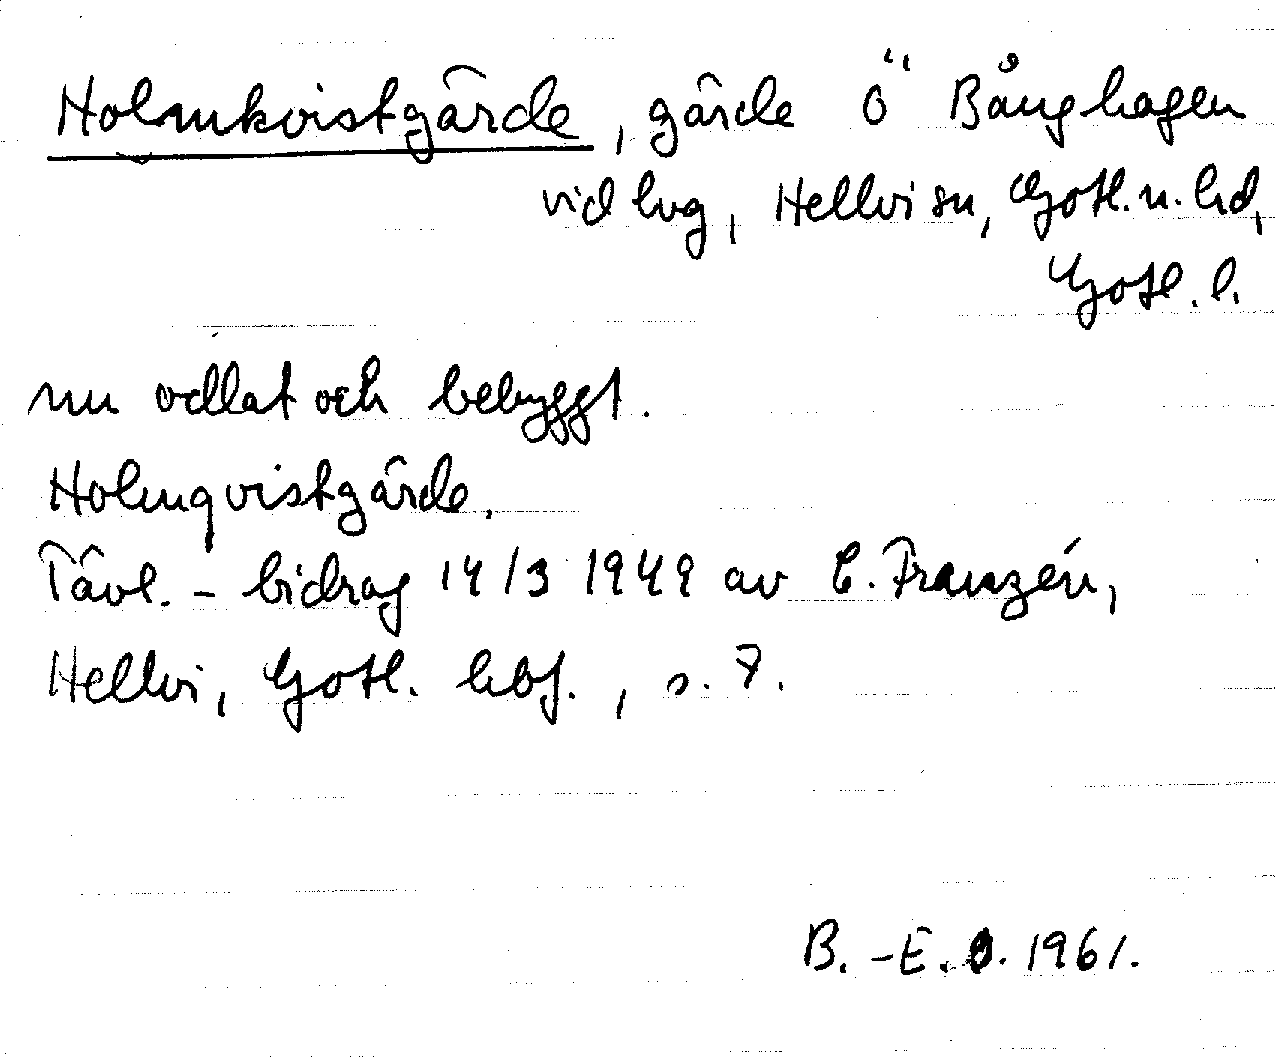 Holmkvistgärde, gärde Ö Bånghagen
vid lvg, Hellvi sn, Gotl. n. hd,
Gotl. l.
nu odlat och bebyggt.
Holmqvistgärde.
Tävl. - bidrag 14/3 1949 av E. Franzén,
Hellvi, Gotl. hbf., s. 7.
B. -E. O. 1961.